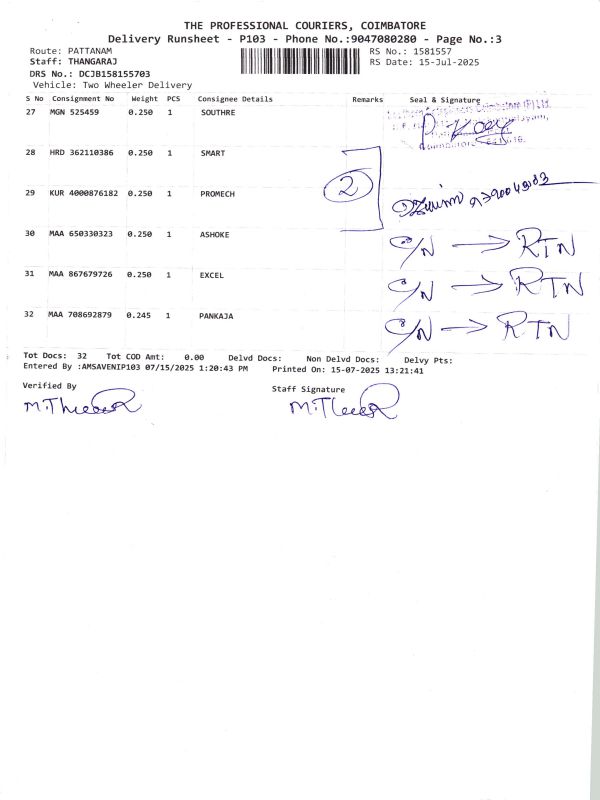 THE PROFESSIONAL COURIERS, COIMBATORE
Delivery Runsheet - P103 - Phone No.:9047080280 - Page No.:3
Route: PATTANAM RS No.: 1581557
Staff: THANGARAJ RS Date: 15-Jul-2025
DRS No.: DCJB158155703
Vehicle: Two Wheeler Delivery
S No Consignment No Weight PCS Consignee Details Remarks Seal & Signature
27 MGN 525459 0.250 1 SOUTHRE
28 HRD 362110386 0.250 1 SMART
2
29 KUR 4000876182 0.250 1 PROMECH
30 MAA 650330323 0.250 1 ASHOKE C/N → RTN
31 MAA 867679726 0.250 1 EXCEL C/N → RTN
32 MAA 708692879 0.245 1 PANKAJA C/N → RTN
Tot Docs: 32 Tot COD Amt: 0.00 Delvd Docs: Non Delvd Docs: Delvy Pts:
Entered By :AMSAVENIP103 07/15/2025 1:20:43 PM Printed On: 15-07-2025 13:21:41
Verified By Staff Signature